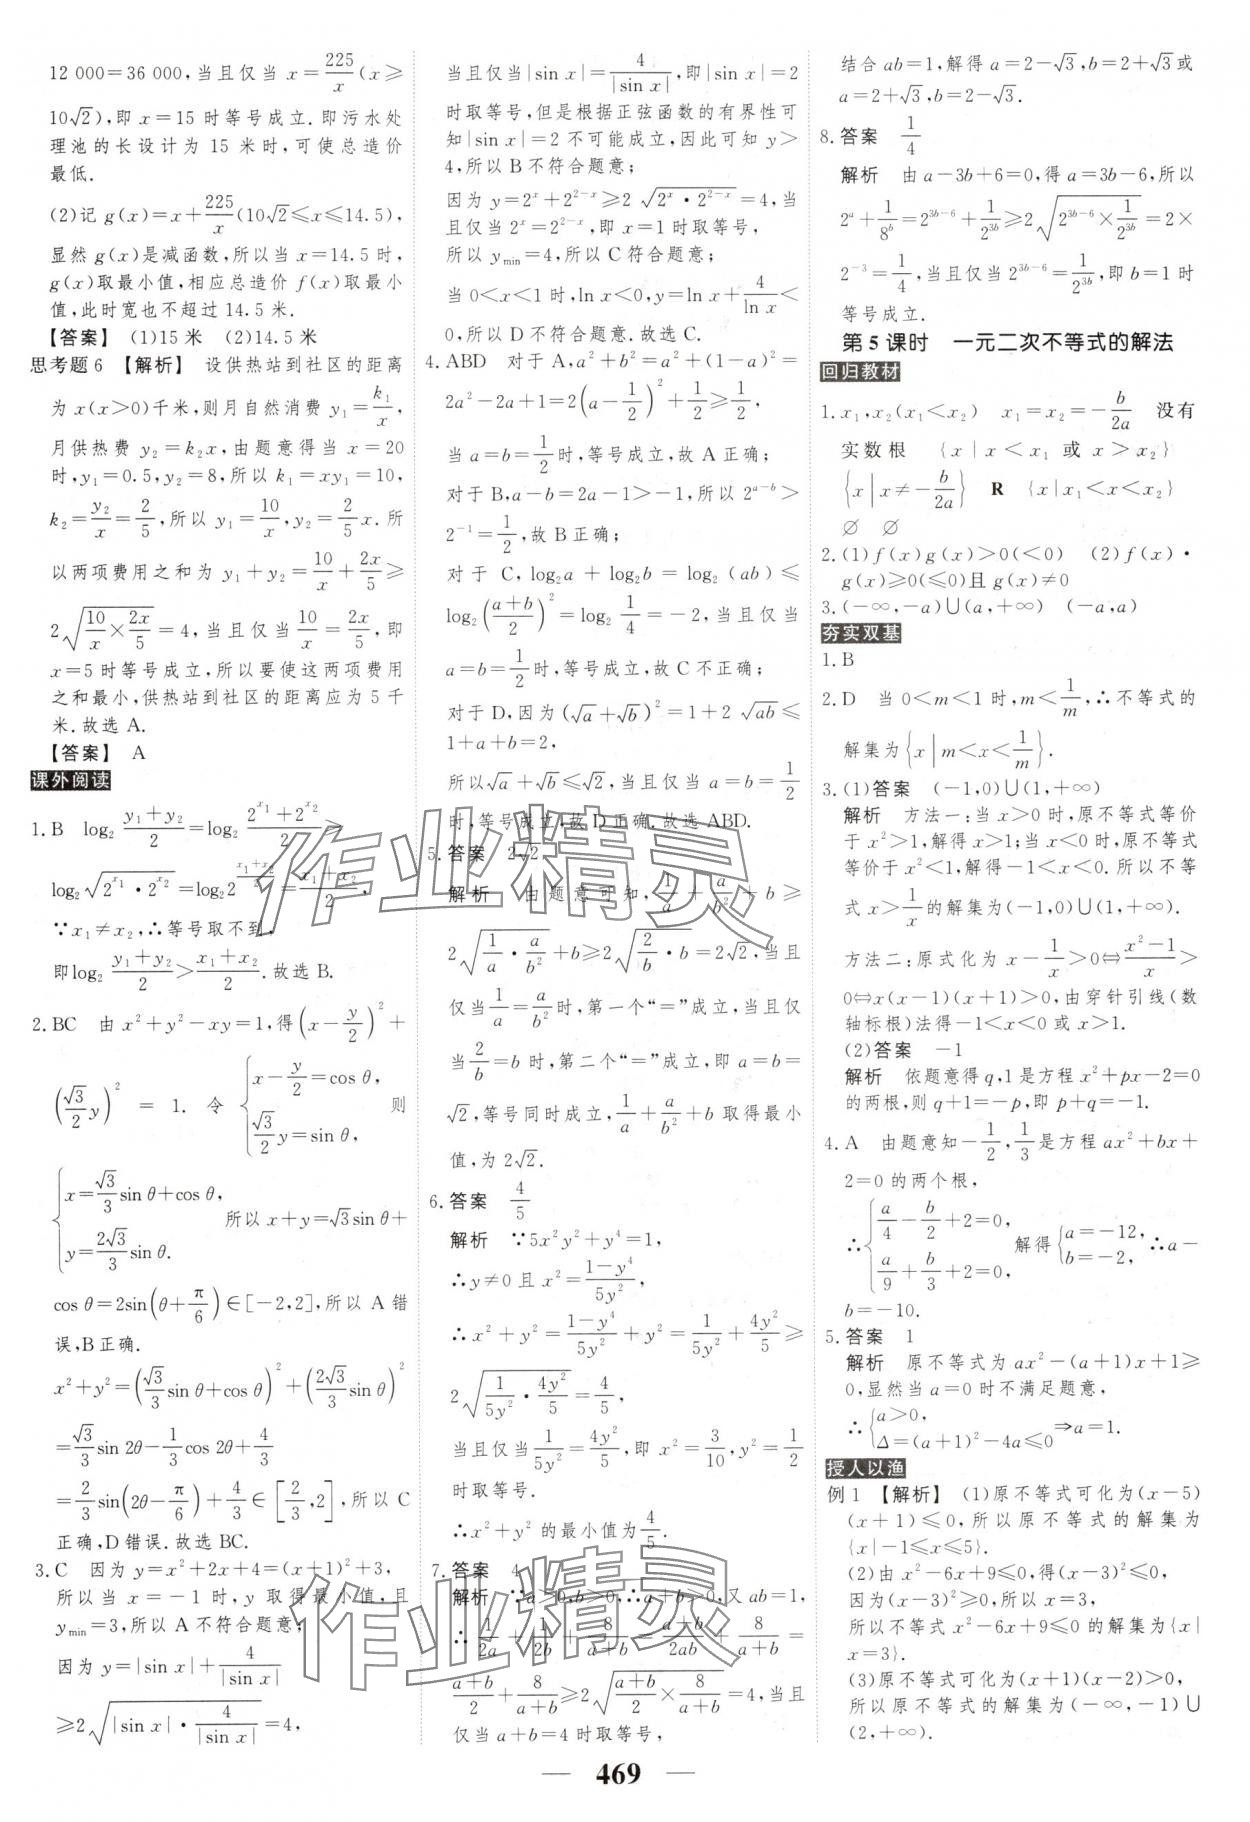 12 000=36 000,当且仅当 x=225/x(x≥
10√2),即 x=15 时等号成立.即污水处
理池的长设计为 15 米时,可使总造价
最低.
(2)记 g(x)=x+225/x(10√2≤x≤14.5),
显然 g(x)是减函数,所以当 x=14.5 时,
g(x)取最小值,相应总造价 f(x)取最小
值,此时宽也不超过 14.5 米.
【答案】 (1)15 米 (2)14.5 米
思考题 6 【解析】 设供热站到社区的距离
为 x(x>0)千米,则月自然消费 y₁=k₁/x,
月供热费 y₂=k₂x,由题意得当 x=20
时,y₁=0.5,y₂=8,所以 k₁=xy₁=10,
k₂=y₂/x=2/5,所以 y₁=10/x,y₂=2/5x.所
以两项费用之和为 y₁+y₂=10/x+2x/5≥
2√(10/x×2x/5)=4,当且仅当10/x=2x/5,即
x=5 时等号成立,所以要使这两项费用
之和最小,供热站到社区的距离应为 5 千
米.故选 A.
【答案】 A
课外阅读
1.B log₂(y₁+y₂)/2=log₂(2^x₁+2^x₂)/2>
log₂√(2^x₁·2^x₂)=log₂2^((x₁+x₂)/2)=(x₁+x₂)/2,
∵x₁≠x₂,∴等号取不到,
即log₂(y₁+y₂)/2>(x₁+x₂)/2.故选 B.
2.BC 由 x²+y²-xy=1,得(x-y/2)²+
(√3/2y)²=1.令{x-y/2=cos θ, √3/2y=sin θ, 则
{x=√3/3sin θ+cos θ, y=2√3/3sin θ. 所以 x+y=√3sin θ+
cos θ=2sin(θ+π/6)∈[-2,2],所以 A 错
误,B 正确.
x²+y²=(√3/3sin θ+cos θ)²+(2√3/3sin θ)²
=√3/3sin 2θ-1/3cos 2θ+4/3
=2/3sin(2θ-π/6)+4/3∈[2/3,2],所以 C
正确,D 错误.故选 BC.
3.C 因为 y=x²+2x+4=(x+1)²+3,
所以当 x=-1 时,y 取得最小值,且
y_min=3,所以 A 不符合题意;
因为 y=|sin x|+4/|sin x|
≥2√(|sin x|·4/|sin x|)=4,
当且仅当|sin x|=4/|sin x|,即|sin x|=2
时取等号,但是根据正弦函数的有界性可
知|sin x|=2 不可能成立,因此可知 y>
4,所以 B 不符合题意;
因为 y=2^x+2^(2-x)≥2√(2^x·2^(2-x))=4,当
且仅当 2^x=2^(2-x),即 x=1 时取等号,
所以 y_min=4,所以 C 符合题意;
当 0<x<1 时,ln x<0,y=ln x+4/ln x<
0,所以 D 不符合题意.故选 C.
4.ABD 对于 A,a²+b²=a²+(1-a)²=
2a²-2a+1=2(a-1/2)²+1/2≥1/2,
当 a=b=1/2时,等号成立,故 A 正确;
对于 B,a-b=2a-1>-1,所以 2^(a-b)>
2⁻¹=1/2,故 B 正确;
对于 C,log₂a+log₂b=log₂(ab)≤
log₂((a+b)/2)²=log₂1/4=-2,当且仅当
a=b=1/2时,等号成立,故 C 不正确;
对于 D,因为(√a+√b)²=1+2√ab≤
1+a+b=2,
所以√a+√b≤√2,当且仅当 a=b=1/2
时,等号成立,故 D 正确.故选 ABD.
5.答案 2√2
解析 由题意可知,1/a+a/b²+b≥
2√(1/a·a/b²)+b≥2√(2/b·b)=2√2,当且
仅当1/a=a/b²时,第一个“=”成立,当且仅
当2/b=b 时,第二个“=”成立,即 a=b=
√2,等号同时成立,1/a+a/b²+b 取得最小
值,为 2√2.
6.答案 4/5
解析 ∵5x²y²+y⁴=1,
∴y≠0 且 x²=(1-y⁴)/5y²,
∴x²+y²=(1-y⁴)/5y²+y²=1/5y²+4y²/5≥
2√(1/5y²·4y²/5)=4/5,
当且仅当1/5y²=4y²/5,即 x²=3/10,y²=1/2
时取等号.
∴x²+y² 的最小值为4/5.
7.答案 4
解析 ∵a>0,b>0,∴a+b>0,又 ab=1,
∴1/2a+1/2b+8/(a+b)=(a+b)/2ab+8/(a+b)=
(a+b)/2+8/(a+b)≥2√((a+b)/2×8/(a+b))=4,当且
仅当 a+b=4 时取等号,
结合 ab=1,解得 a=2-√3,b=2+√3或
a=2+√3,b=2-√3.
8.答案 1/4
解析 由 a-3b+6=0,得 a=3b-6,所以
2^a+1/8^b=2^(3b-6)+1/2^(3b)≥2√(2^(3b-6)×1/2^(3b))=2×
2⁻³=1/4,当且仅当 2^(3b-6)=1/2^(3b),即 b=1 时
等号成立.
第 5 课时 一元二次不等式的解法
回归教材
1.x₁,x₂(x₁<x₂) x₁=x₂=-b/2a 没有
实数根 {x|x<x₁ 或 x>x₂}
{x|x≠-b/2a} R {x|x₁<x<x₂}
∅ ∅
2.(1)f(x)g(x)>0(<0) (2)f(x)·
g(x)≥0(≤0)且 g(x)≠0
3.(-∞,-a)∪(a,+∞) (-a,a)
夯实双基
1.B
2.D 当 0<m<1 时,m<1/m,∴不等式的
解集为{x|m<x<1/m}.
3.(1)答案 (-1,0)∪(1,+∞)
解析 方法一:当 x>0 时,原不等式等价
于 x²>1,解得 x>1;当 x<0 时,原不等式
等价于 x²<1,解得-1<x<0.所以不等
式 x>1/x的解集为(-1,0)∪(1,+∞).
方法二:原式化为 x-1/x>0⇔(x²-1)/x>
0⇔x(x-1)(x+1)>0,由穿针引线(数
轴标根)法得-1<x<0 或 x>1.
(2)答案 -1
解析 依题意得 q,1 是方程 x²+px-2=0
的两根,则 q+1=-p,即 p+q=-1.
4.A 由题意知-1/2,1/3是方程 ax²+bx+
2=0 的两个根,
∴{a/4-b/2+2=0, a/9+b/3+2=0, 解得{a=-12, b=-2, ∴a-
b=-10.
5.答案 1
解析 原不等式为 ax²-(a+1)x+1≥
0,显然当 a=0 时不满足题意,
∴{a>0, Δ=(a+1)²-4a≤0⇒a=1.
授人以渔
例 1 【解析】 (1)原不等式可化为(x-5)
(x+1)≤0,所以原不等式的解集为
{x|-1≤x≤5}.
(2)由 x²-6x+9≤0,得(x-3)²≤0,
因为(x-3)²≥0,所以 x=3,
所以不等式 x²-6x+9≤0 的解集为{x|
x=3}.
(3)原不等式可化为(x+1)(x-2)>0,
所以原不等式的解集为(-∞,-1)∪
(2,+∞).
作业精灵
作业精灵
469